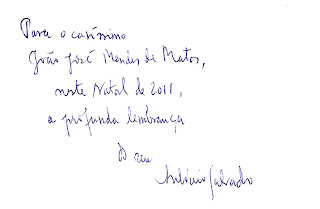 Para o caríssimo
João José Mendes de Matos,
neste Natal de 2011,
a profunda lembrança
D seu
António Salvado